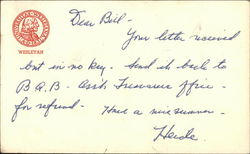 WESLEYAN
Dear Bill -
Your letter received
but in no key. Send it back to
B.A.B. - Asst. Treasurer Office -
for refund - Have a nice summer -
Heide